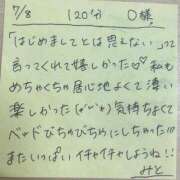 7/8 120分 O様
「はじめましてとは思えない」って
言ってくれて嬉しかった♡ 私も
めちゃくちゃ居心地よくて凄い
楽しかった(*'∨'*) 気持ちよくて
ベッドびちゃびちゃにしちゃった!!!
またいっぱいイチャイチャしようね!!
みと